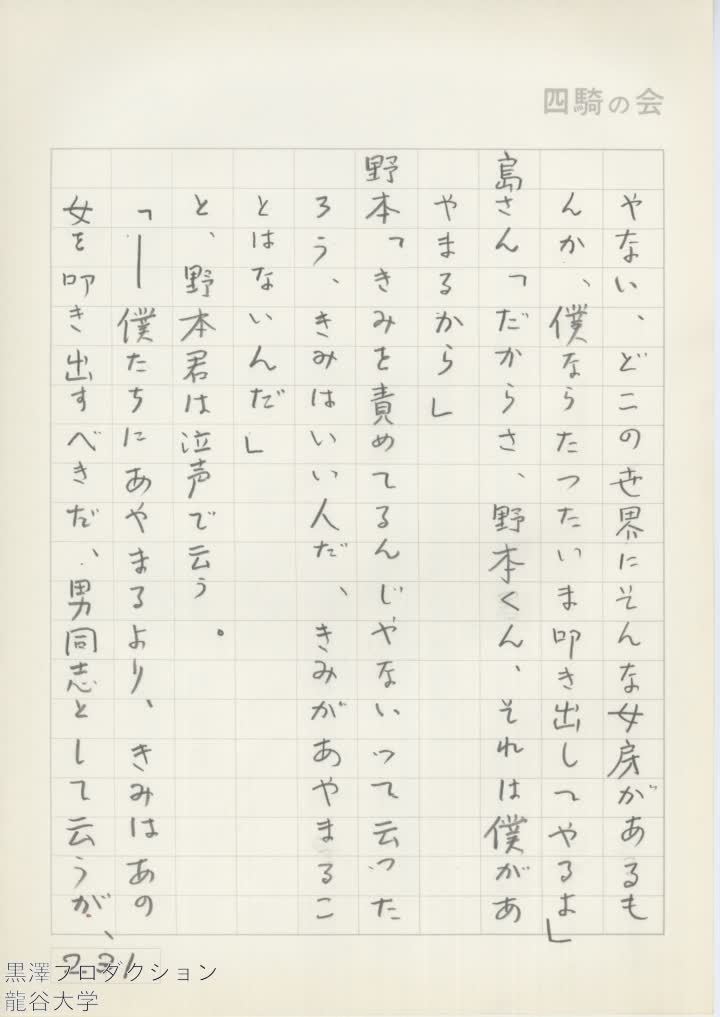 四騎の会
やない、どこの世界にそんな女房があるも
んか、僕ならたったいま叩き出してやるよ」
島さん「だからさ、野本くん、それは僕があ
やまるから」
野本「きみを責めてるんじゃないって云った
ろう、きみはいい人だ、きみがあやまるこ
とはないんだ」
と、野本君は泣声で云う。
「―僕たちにあやまるより、きみはあの
女を叩き出すべきだ、男同志として云うが、
231
黒澤プロダクション
龍谷大学